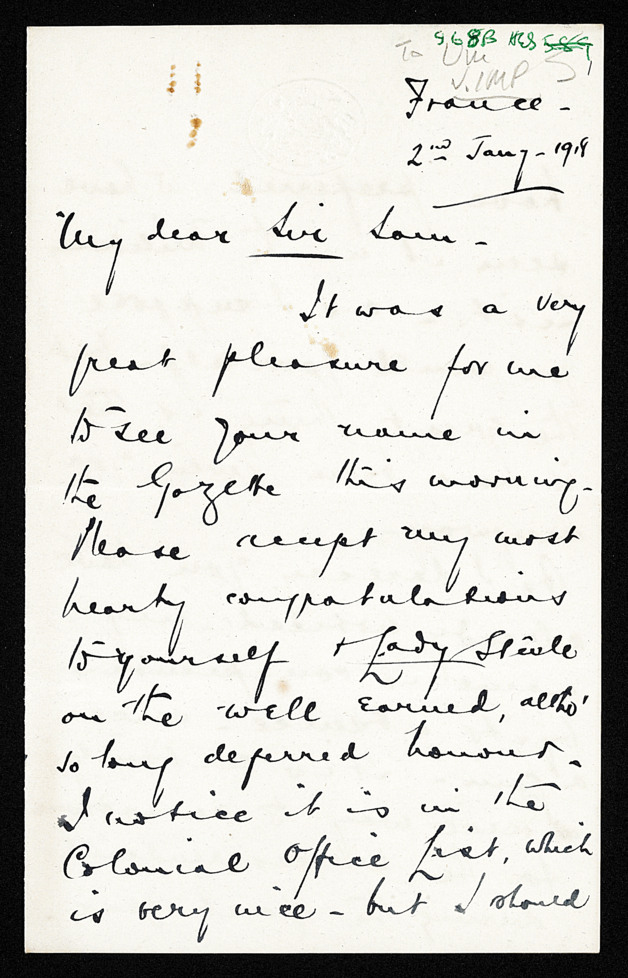 968B HGS 589
To Um
V. IMP
France -
2nd Jany - 1918
My dear Sir Sam -
It was a very
great pleasure for me
to see your name in
the Gazette this morning -
Please accept my most
hearty congratulations
to yourself & Lady Steele
on the well earned, altho'
so long deferred honour -
I notice it is in the
Colonial Office List, which
is very nice - but I should